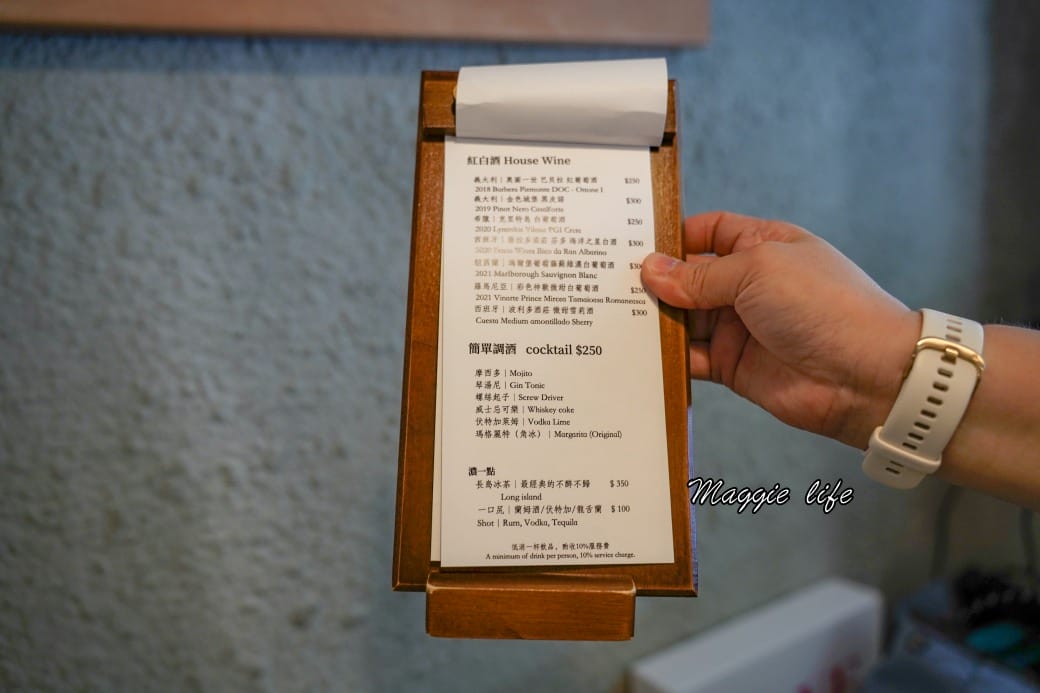 紅白酒 House Wine
義大利 | 奧圖一世 巴貝拉 紅葡萄酒 $250
2018 Barbera Piemonte DOC - Ottone I
義大利 | 金色城堡 黑皮諾 $300
2019 Pinot Nero Castelforte
希臘 | 克里特島 白葡萄酒 $250
2020 Vilana PGI Crete
西班牙 | 酒莊 芬多 海洋之星白酒 $300
2020 Bico da Ran Albarino
紐西蘭 | 馬爾堡葡萄園蘇維濃白葡萄酒 $300
2021 Marlborough Sauvignon Blanc
羅馬尼亞 | 彩色神獸微甜白葡萄酒 $250
2021 Vinarte Prince Mircea Tamaioasa Romaneasca
西班牙 | 波利多酒莊 微甜雪莉酒 $300
Cuesta Medium amontillado Sherry
簡單調酒 cocktail $250
摩西多 | Mojito
琴湯尼 | Gin Tonic
螺絲起子 | Screw Driver
威士忌可樂 | Whiskey coke
伏特加萊姆 | Vodka Lime
瑪格麗特（角冰） | Margarita (Original)
濃一點
長島冰茶 | 最經典的不醉不歸 $ 350
Long island
一口屁 | 蘭姆酒/伏特加/龍舌蘭 $ 100
Shot | Rum, Vodka, Tequila
低消一杯飲品，酌收10%服務費
A minimum of drink per person, 10% service charge.
Maggie life